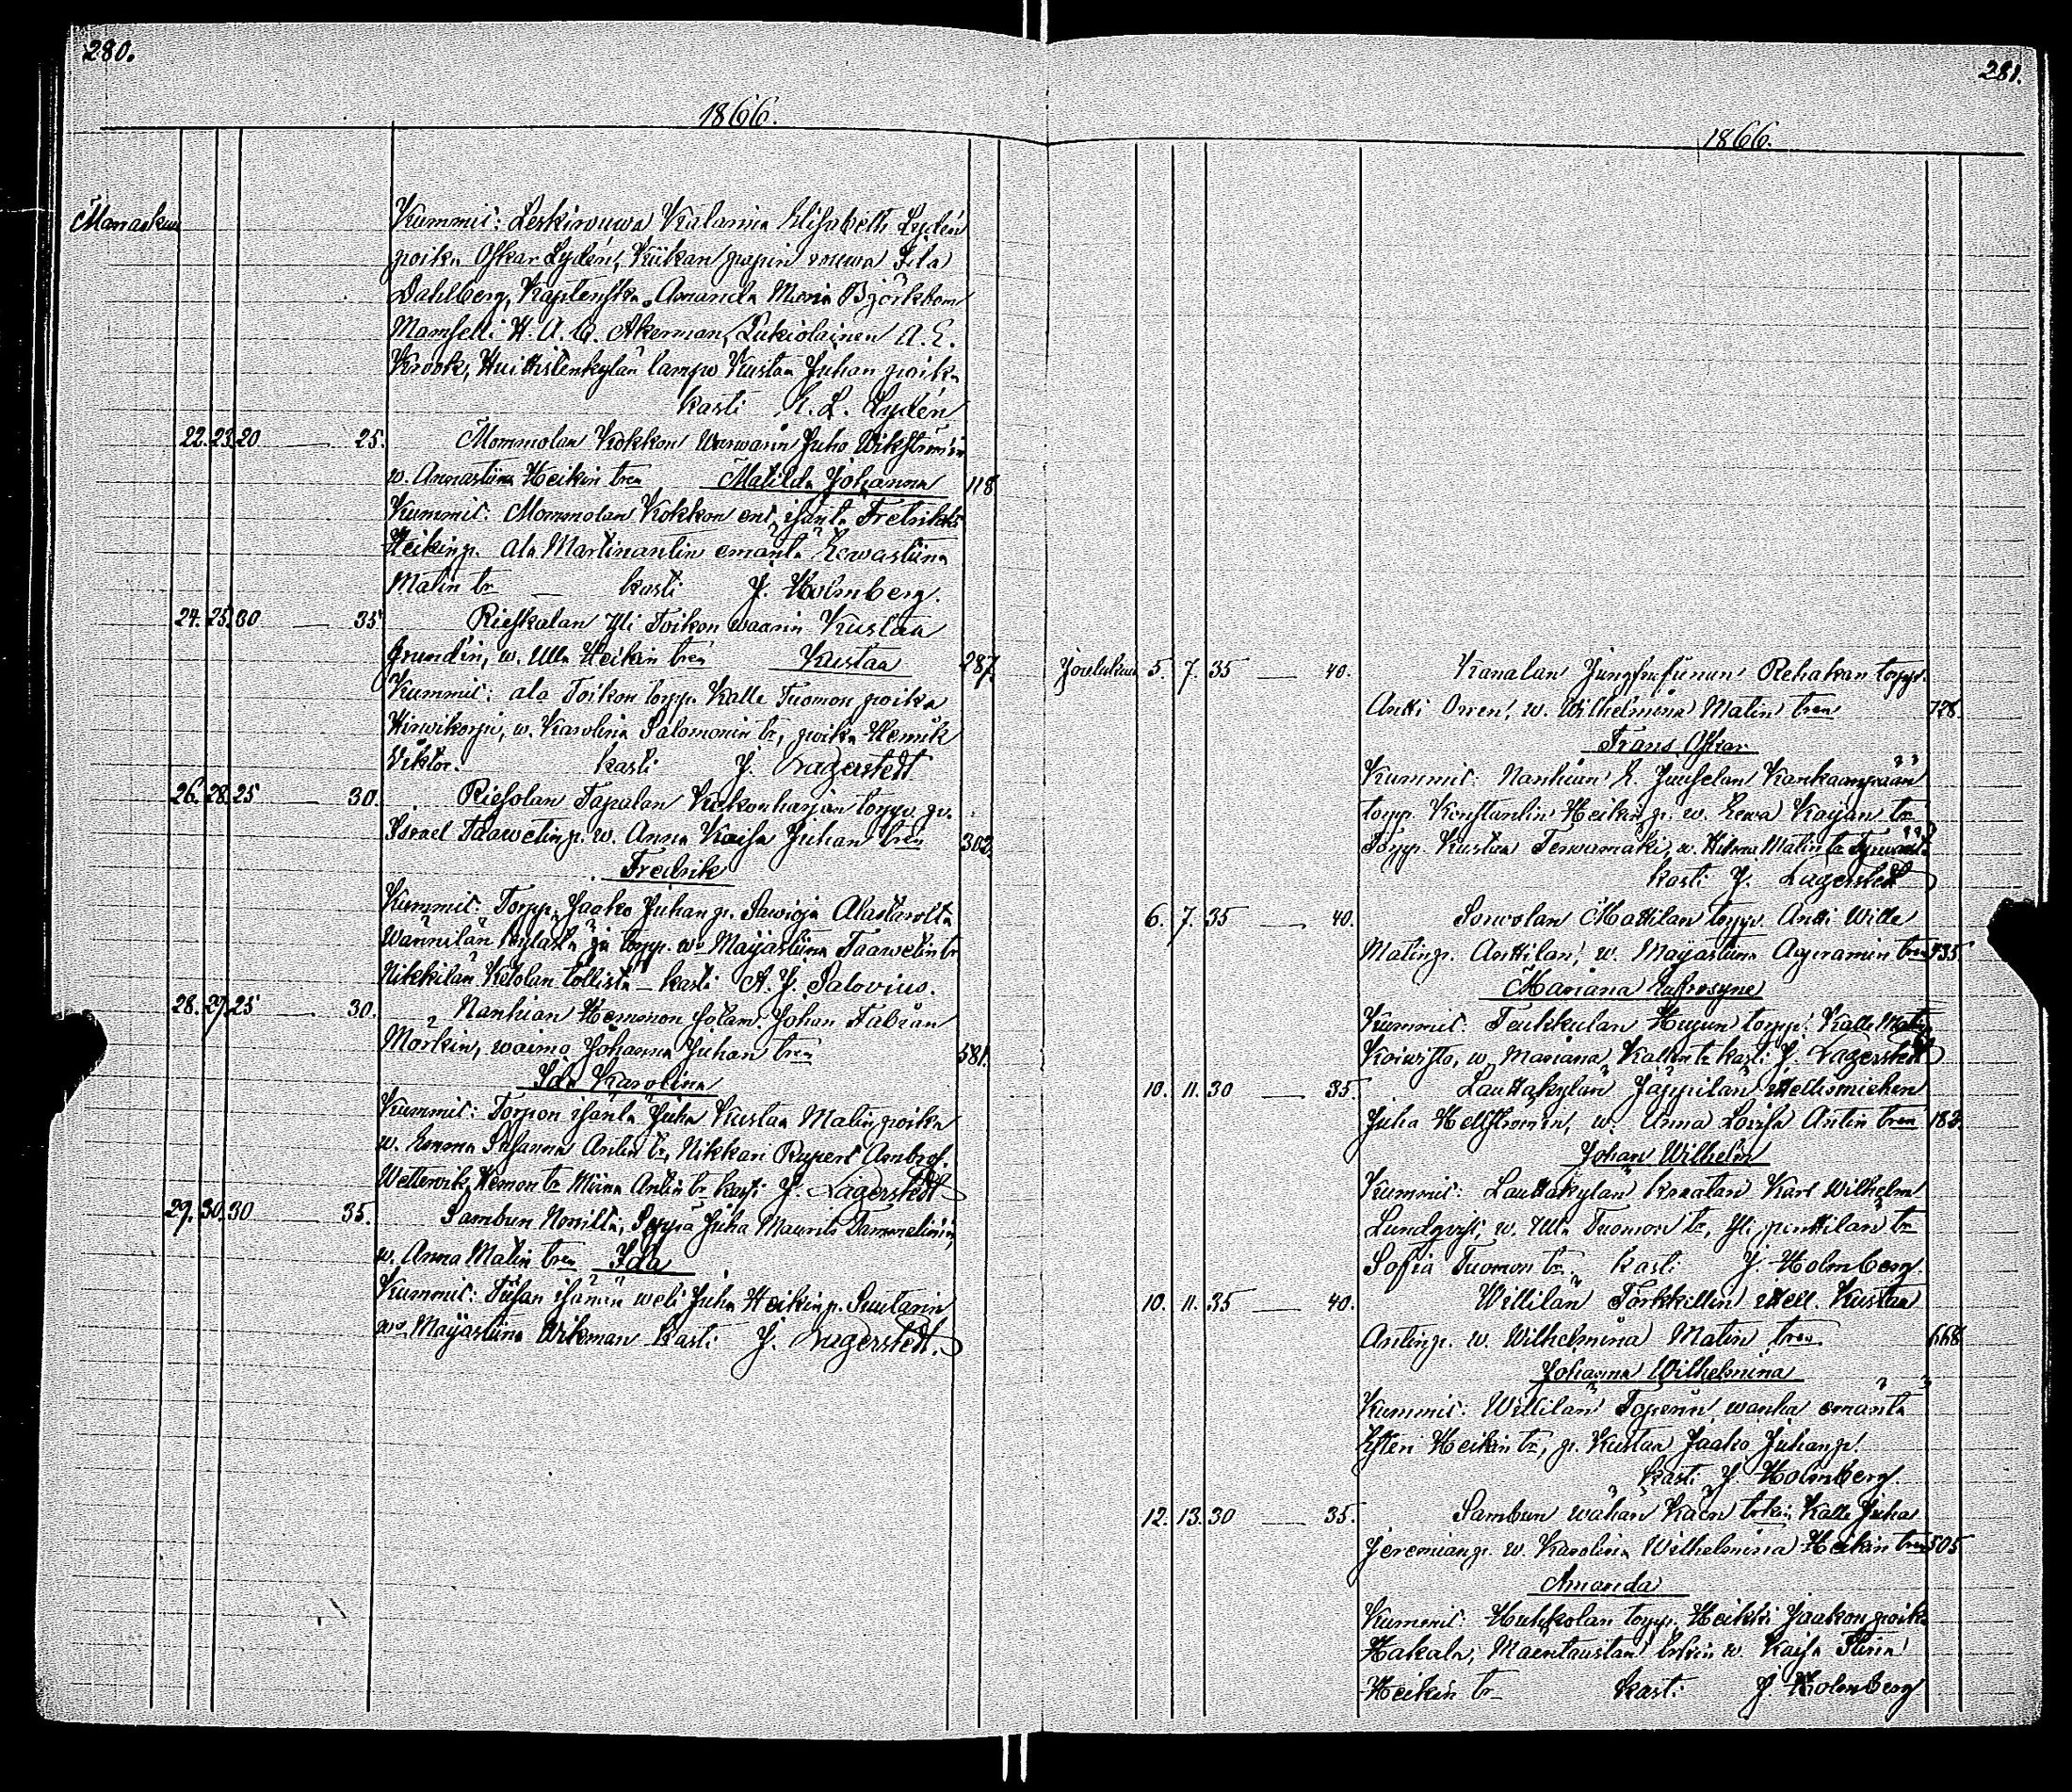 280.
1866.
Marraskuu
Kummit: Leskirouwa Katarina Elisabeth Lydén
poika Oskar Lydén, Kiikan papin rouwa
Dahlberg, Amanda Maria Björkbom
Mamselli H. A. Akerman, Lukiolainen A. E.
Krook, Huittistenkylän Kustaa Juhan poika
kasti E. L. Lydén
22. 23. 20 — 25. Mommolan Kokkon Juho Wikströmin
w. Annastiina Heikin tren Matilda Johanna 118
Kummit: Mommolan Kokkon ent. isäntä Fredrik
Heikinp. ala Martinantin emäntä Eewastiina
Matin tr — kasti J. Holmberg.
24. 25. 30 — 35. Rieskalan Yli Toikon waarin Kustaa
Grundin, w. Ulla Heikin tren Kustaa 287.
Kummit: ala Toikon torpp. Kalle Tuomon poika
Hirwikorpi, w. Karolina Salomonin tr, poika Henrik
Viktor. kasti J. Lagerstedt
26. 28. 25 — 30. Riesolan Tapulan torpp. po.
Israel Taawetinp. w. Anna Kaisa Juhan tren 302.
Fredrik
Kummit: Torpp. Jaako Juhan p. Sawioja Alastarolta
Wännilän kylästä ja torpp. wo Maijastiina Taawetin tr
Nikkilän Ketolan — kasti A. J. Salovius.
28. 29. 25 — 30. Nanhian Hemmon Johan Fabian
Mörkin, waimo Johanna Juhan tren 581.
Ida Karolina
Kummit: Torpon isäntä Juha Kustaa Matin poika
w. Emma Susanna Antin tr, Nikkari Rupert Ambros.
Wetterwik, Hemon tr Miina Antin tr kasti J. Lagerstedt
29. 30. 30 — 35. Sambun Seppä Juha Maurits Tammelinin,
w. Anna Matin tren Ida
Kummit: isännän weli Juha Heikin p. Suutarin
wo Maijastiina Wikman kasti J. Lagerstedt.
281.
1866.
Joulukuu 5. 7. 35 — 40. Karalan torpp.
Antti Orren, w. Wilhelmina Matin tren 728.
Frans Oskar
Kummit: Nanhian E. Juuselan Kankaanpään
torpp. Konstantin Heikin p. w. Eewa Kaijan tr
Torpp. Kustaa Terwamäki, w. Hilma Matin tr
kasti J. Lagerstedt
6. 7. 35 — 40. Sorwolan Mattilan torpp. Antti Wille
Matinp. Anttilan, w. Maijastiina tren 735
Mariana Eufrosyne
Kummit: Teukkulan Hugun torpp. Kalle Matinp
Koiwisto, w. Mariana Kallen tr kasti J. Lagerstedt
10. 11. 30 — 35. Lauttakylän Jäppilän itsellismiehen
Juha Hellströmin, w. Anna Lovisa Antin tren 182.
Johan Wilhelm
Kummit: Lauttakylän kraatari Karl Wilhelm
Lundqvist, w. Ulla Tuomon tr, Yli penttilän tr
Sofia Tuomon tr. kasti J. Holmberg
10. 11. 35 — 40. Willilän Törkkillin itsell. Kustaa
Antinp. w. Wilhelmina Matin tren 668
Johanna Wilhelmina
Kummit: Willilän wanha emäntä
Esteri Heikin tr, p. Kustaa Jaako Juhanp.
kasti J. Holmberg.
12. 13. 30 — 35. Sambun wähän Kalle Juha
Jeremianp. w. Karolina Wilhelmina Heikin tren 505
Amanda
Kummit: Huhkolan torpp. Heikki Jaakon poika
Hakala, Mäentaustan w. Kaisa Stiina
Heikin tr — kasti J. Holmberg